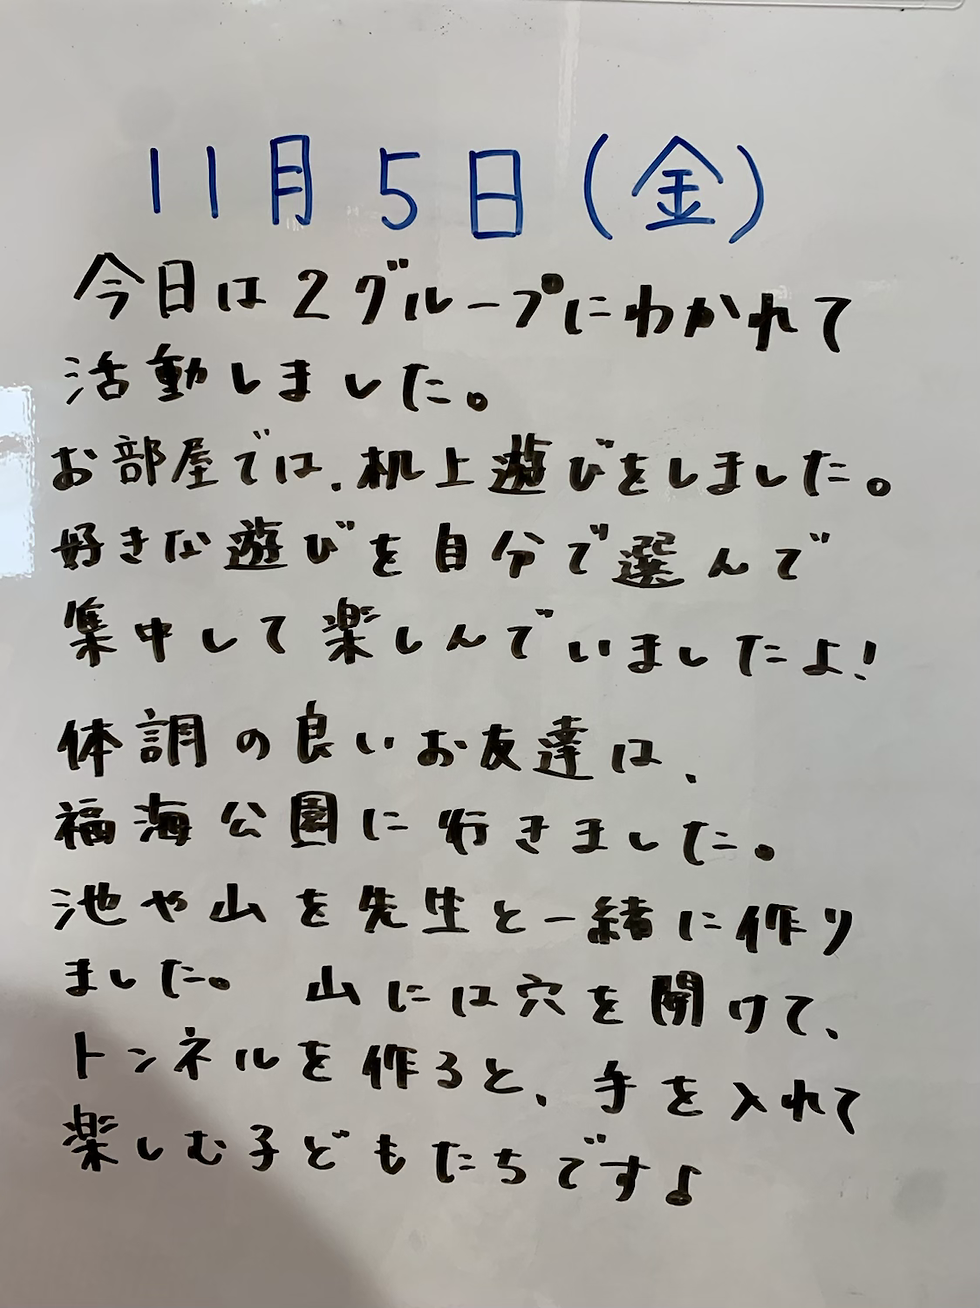 11月5日(金)
今日は2グループにわかれて
活動しました。
お部屋では、机上遊びをしました。
好きな遊びを自分で選んで
集中して楽しんでいましたよ!
体調の良いお友達は、
福海公園に行きました。
池や山を先生と一緒に作り
ました。 山には穴を開けて、
トンネルを作ると、手を入れて
楽しむ子どもたちです♪